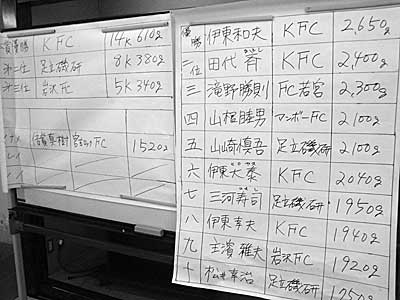 優勝 KFC 14K610g
第二位 足立磯研 8K380g
第三位 岩沢FC 5K340g
真樹 FC 1520g
優勝 伊東和夫 KFC 2,650g
二位 田代 斉 KFC 2,400g
三 滝野勝則 FC若宮 2,300g
四 山根睦男 マンボーFC 2,100g
五 山崎慎吾 足立磯研 2100g
六 伊東大泰 KFC 2040g
七 三河寿司 足立磯研 1950g
八 伊東孝夫 KFC 1940g
九 主濱雅夫 岩沢FC 1920g
十 幸治 足立磯研